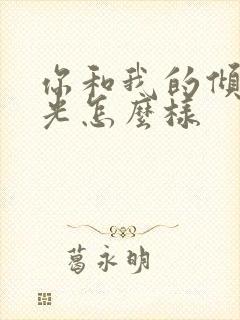 你和我的傾
光怎麼樣
葛永明